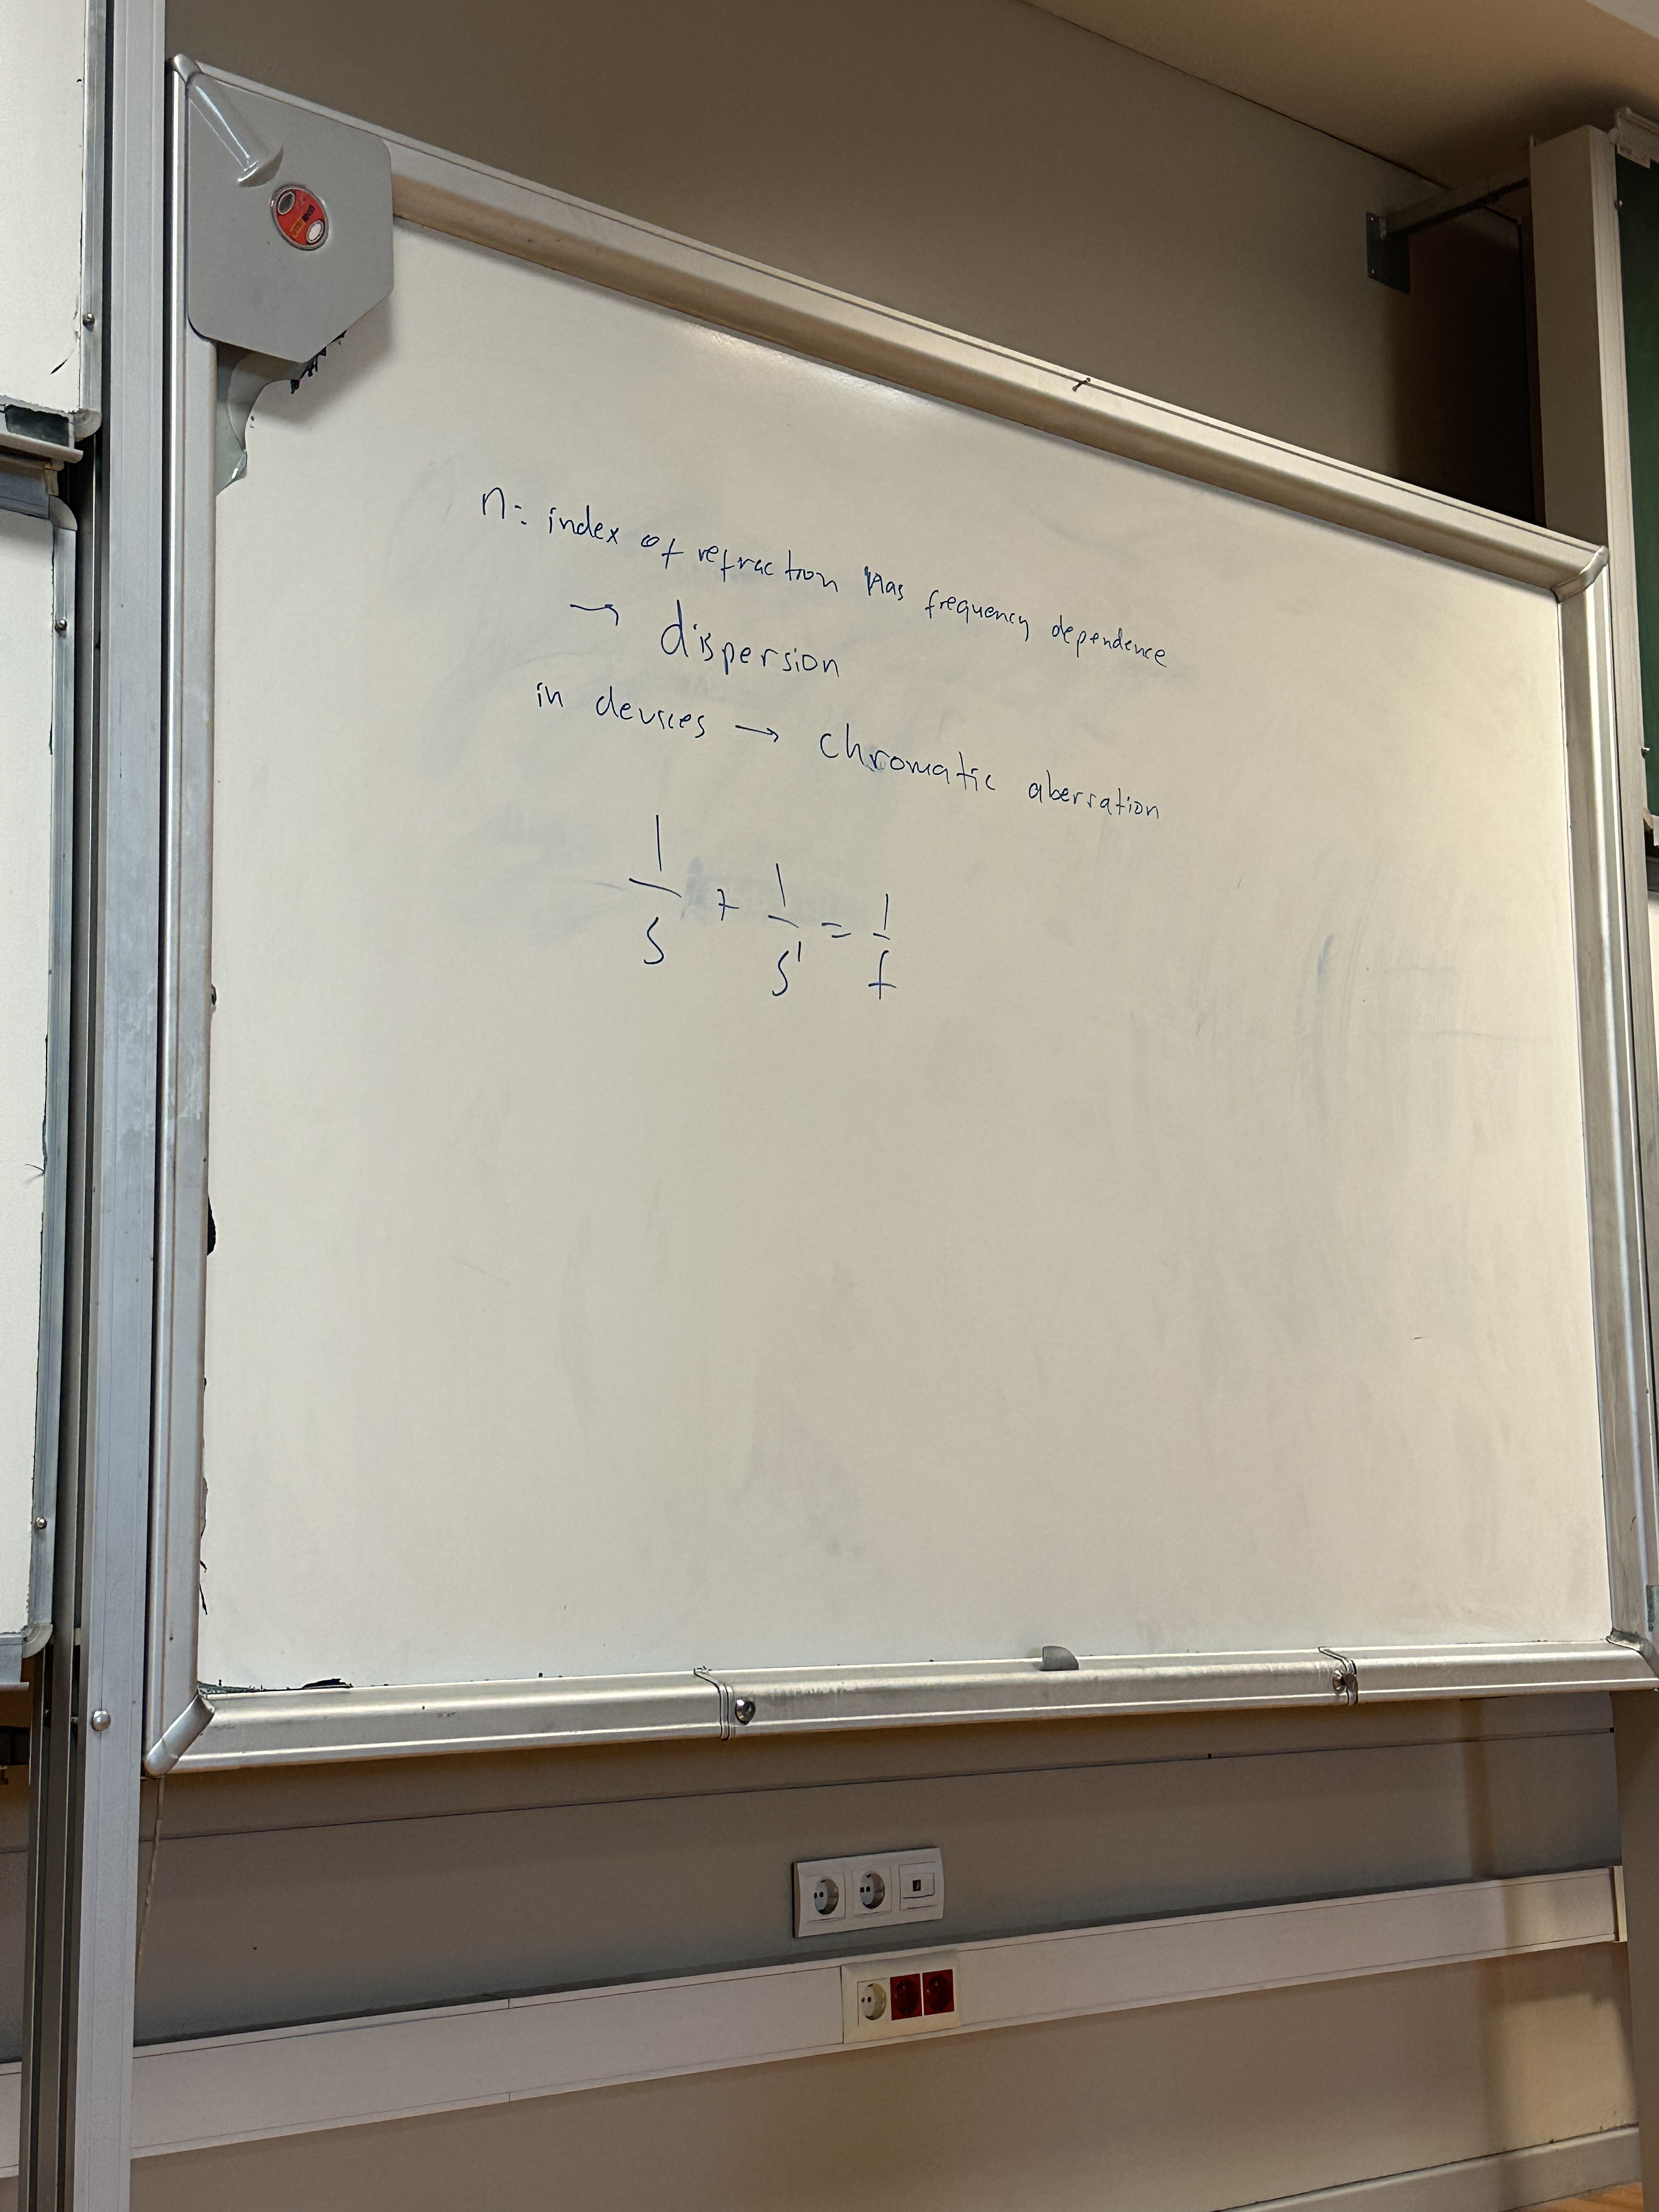 n: index of refraction has frequency dependence
→ dispersion
in devices → chromatic aberration
1/s + 1/s' = 1/f